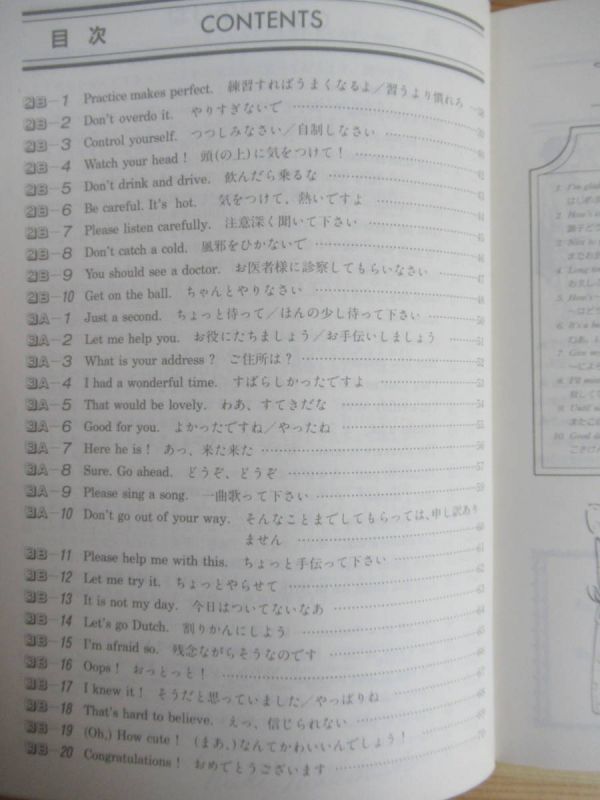 目次 CONTENTS
2B-1 Practice makes perfect. 練習すればうまくなるよ/習うより慣れろ
2B-2 Don't overdo it. やりすぎないで
2B-3 Control yourself. つつしみなさい/自制しなさい
2B-4 Watch your head! 頭(の上)に気をつけて!
2B-5 Don't drink and drive. 飲んだら乗るな
2B-6 Be careful. It's hot. 気をつけて、熱いですよ
2B-7 Please listen carefully. 注意深く聞いて下さい
2B-8 Don't catch a cold. 風邪をひかないで
2B-9 You should see a doctor. お医者様に診察してもらいなさい
2B-10 Get on the ball. ちゃんとやりなさい
3A-1 Just a second. ちょっと待って/ほんの少し待って下さい
3A-2 Let me help you. お役にたちましょう/お手伝いしましょう 51
3A-3 What is your address? ご住所は? 52
3A-4 I had a wonderful time. すばらしかったですよ 53
3A-5 That would be lovely. わあ、すてきだな 54
3A-6 Good for you. よかったですね/やったね 55
3A-7 Here he is! あっ、来た来た 56
3A-8 Sure. Go ahead. どうぞ、どうぞ 57
3A-9 Please sing a song. 一曲歌って下さい 59
3A-10 Don't go out of your way. そんなことまでしてもらっては、申し訳あり
ません 60
3B-11 Please help me with this. ちょっと手伝って下さい 61
3B-12 Let me try it. ちょっとやらせて 62
3B-13 It is not my day. 今日はついてないなあ
3B-14 Let's go Dutch. 割りかんにしよう
3B-15 I'm afraid so. 残念ながらそうなのです
3B-16 Oops! おっとっと!
3B-17 I knew it! そうだと思っていました/やっぱりね
3B-18 That's hard to believe. えっ、信じられない
3B-19 (Oh,) How cute! (まあ、)なんてかわいいんでしょう!
3B-20 Congratulations! おめでとうございます